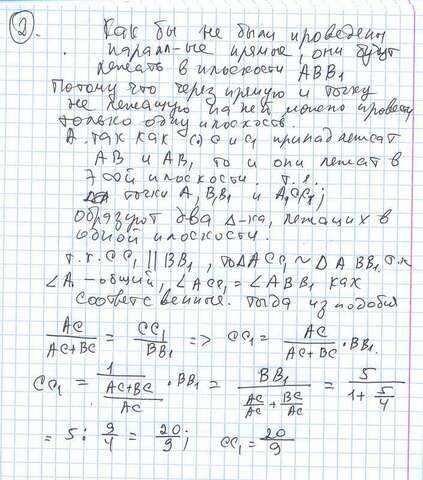 2. Как бы не были проведены
паралл-ые прямые, они будут
лежать в плоскости ABB₁
Потому что через прямую и точку
не лежащую на ней можно провести
только одну плоскость.
А так как (·) С и С₁ принадлежат
AB и AB₁ то и они лежат в
этой плоскости. т.е.
точки A, B, B₁ и A, C, C₁;
образуют два Δ-ка, лежащих в
одной плоскости.
т.к. CC₁ || BB₁, то ΔACC₁ ~ ΔABB₁ т.к
∠A - общий, ∠ACC₁ = ∠ABB₁ как
соответсвенные. тогда из подобия
AC/(AC+BC) = CC₁/BB₁ => CC₁ = AC/(AC+BC) · BB₁
CC₁ = 1/((AC+BC)/AC) · BB₁ = BB₁/(AC/AC + BC/AC) = 5/(1 + 5/4)
= 5 : 9/4 = 20/9; CC₁ = 20/9